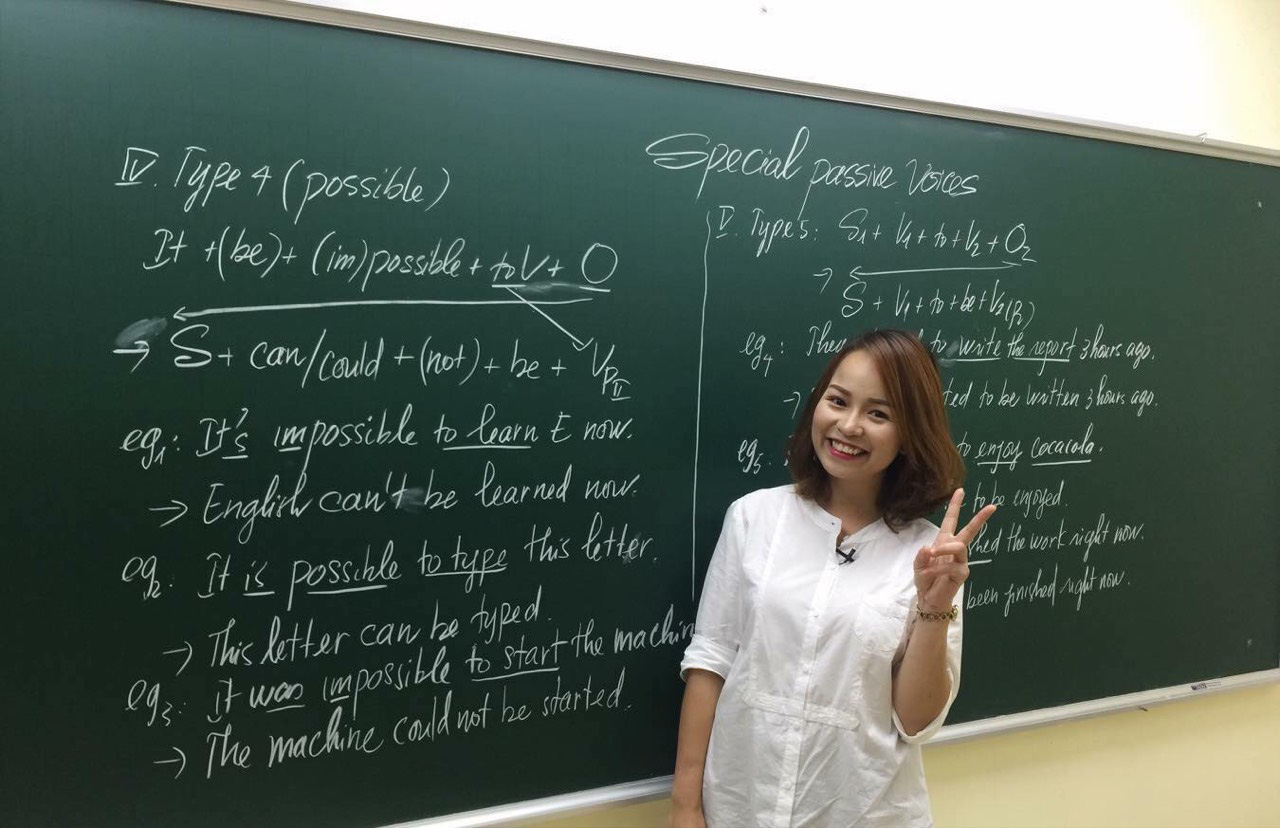 Special passive Voices
IV. Type 4 (possible)
It + (be) + (im)possible + to V + O
→ S + can/could + (not) + be + VpII
eg1: It's impossible to learn E now.
→ English can't be learned now.
eg2: It is possible to type this letter.
→ This letter can be typed.
eg3: It was impossible to start the machin
→ The machine could not be started.
V. Type 5: S1 + V1 + to + V2 + O2
→ S + V1 + to + be + V2(P2)
eg4: They to write the report 3 hours ago.
→ ted to be written 3 hours ago.
eg5: to enjoy cocacola.
to be enjoyed.
shed the work right now.
been finished right now.